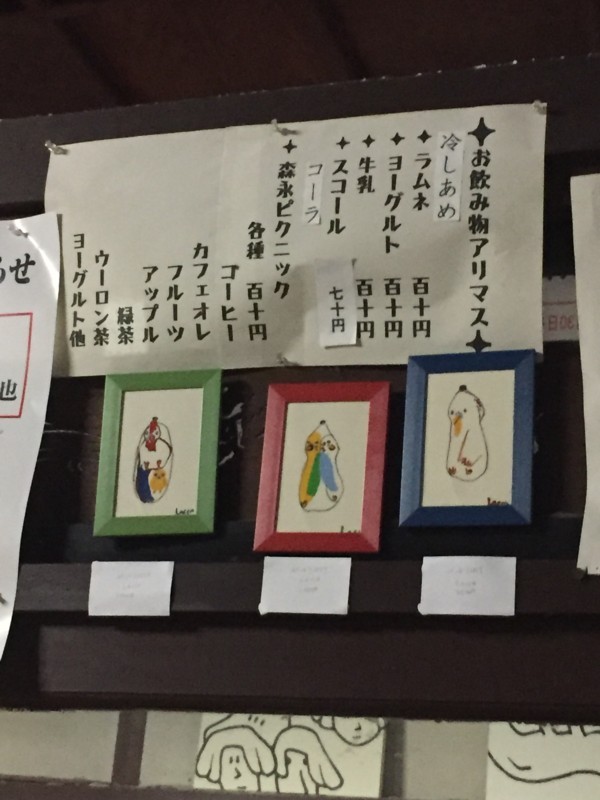 お飲み物アリマス
冷しあめ
ラムネ 百十円
ヨーグルト 百十円
牛乳 百十円
スコール 七十円
コーラ
森永ピクニック
各種 百十円
コーヒー
カフェオレ
フルーツ
アップル
緑茶
ウーロン茶
ヨーグルト他
らせ
也